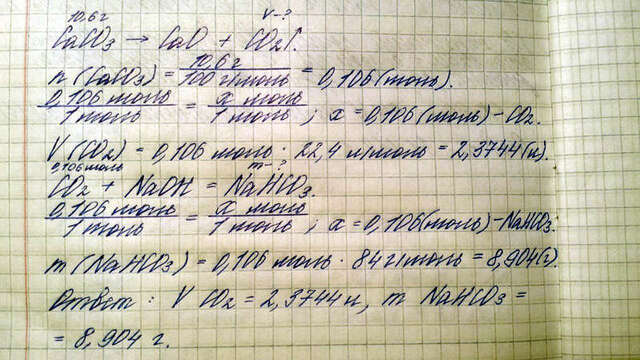 10,6 г V - ?
CaCO3 → CaO + CO2↑.
n (CaCO3) = 10,6 г / 100 г/моль = 0,106 (моль).
0,106 моль / 1 моль = x моль / 1 моль ; x = 0,106 (моль) - CO2.
V (CO2) = 0,106 моль · 22,4 л/моль = 2,3744 (л).
0,106 моль m - ?
CO2 + NaOH = NaHCO3.
0,106 моль / 1 моль = x моль / 1 моль ; x = 0,106 (моль) - NaHCO3.
m (NaHCO3) = 0,106 моль · 84 г/моль = 8,904 (г).
Ответ : V CO2 = 2,3744 л, m NaHCO3 =
= 8,904 г.